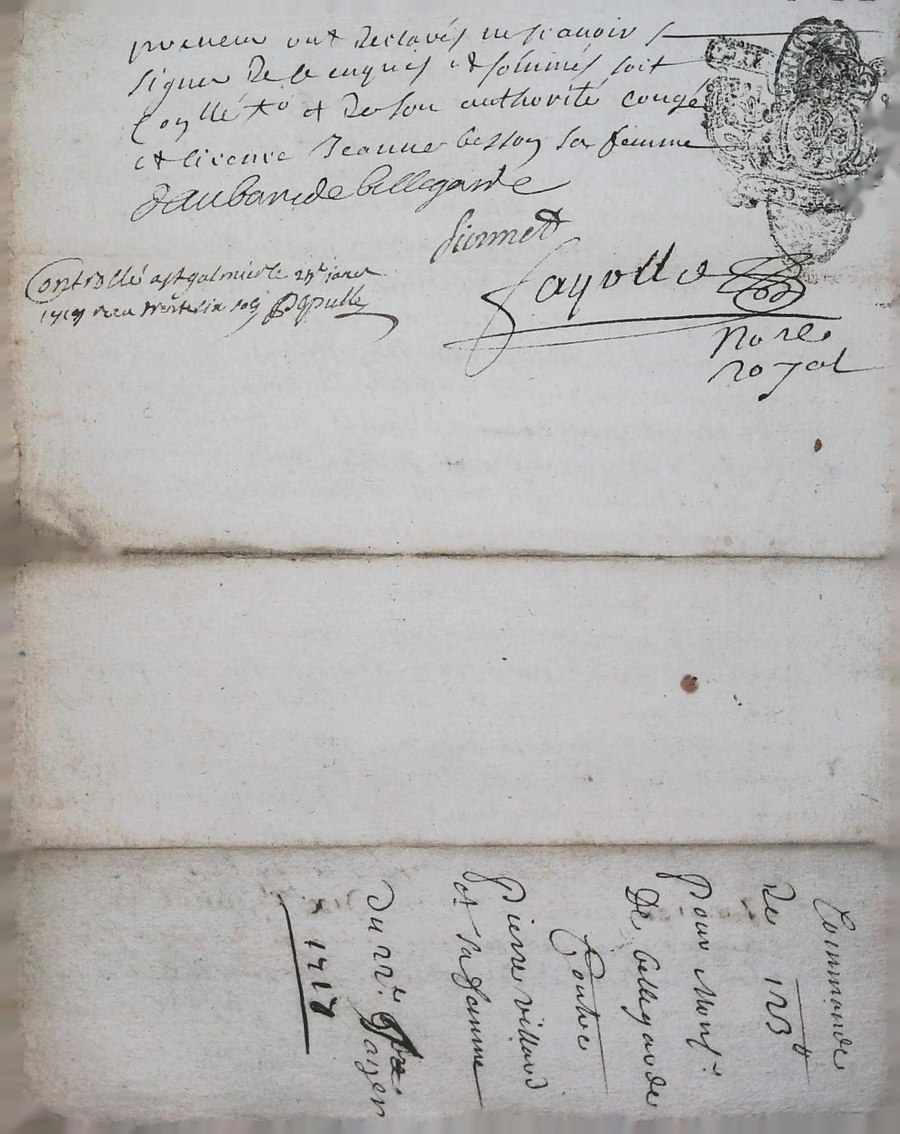 preneur ont declarés ne scavoir
signer de ce enquis et sommés soit
et de son authorité congé
et licence Jeanne besson sa femme
Daubarede bellegarde
Sionnest
Fayolle
Nore
royal
Controllé a St galmier le 29e janer
1717 receu trente six sols
Commande
de 123ᵗᵗ
Pour Monsr
De bellegarde
Contre
Pierre villard
et sa femme
Du 22e
1717